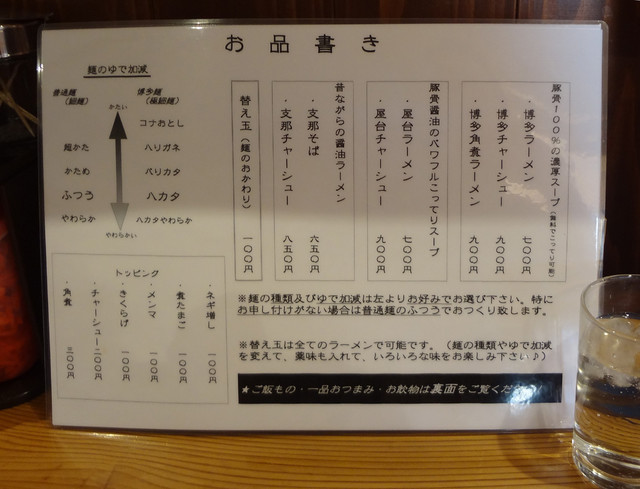 お品書き
豚骨100%の濃厚スープ(無料でこってり可能)
・博多ラーメン 七〇〇円
・博多チャーシュー 九〇〇円
・博多角煮ラーメン 九〇〇円
豚骨醤油のパワフルこってりスープ
・屋台ラーメン 七〇〇円
・屋台チャーシュー 九〇〇円
昔ながらの醤油ラーメン
・支那そば 六五〇円
・支那チャーシュー 八五〇円
替え玉(麺のおかわり) 一〇〇円
麺のゆで加減
普通麺(細麺)
博多麺(極細麺)
かたい
コナおとし
麺かた ハリガネ
かため バリカタ
ふつう ハカタ
やわらか ハカタやわらか
やわらかい
トッピング
・ネギ増し 一〇〇円
・煮たまご 一〇〇円
・メンマ 一〇〇円
・きくらげ 一〇〇円
・チャーシュー 二〇〇円
・角煮 三〇〇円
※麺の種類及びゆで加減は左よりお好みでお選び下さい。特に
お申し付けがない場合は普通麺のふつうでおつくり致します。
※替え玉は全てのラーメンで可能です。(麺の種類やゆで加減
を変えて、薬味も入れて、いろいろな味をお楽しみ下さい♪)
★ご飯もの・一品おつまみ・お飲物は裏面をご覧ください！